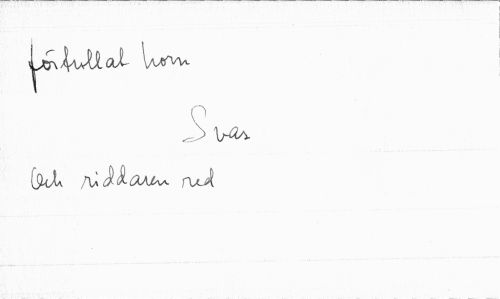 förtrollat horn
Svar
Och riddaren red